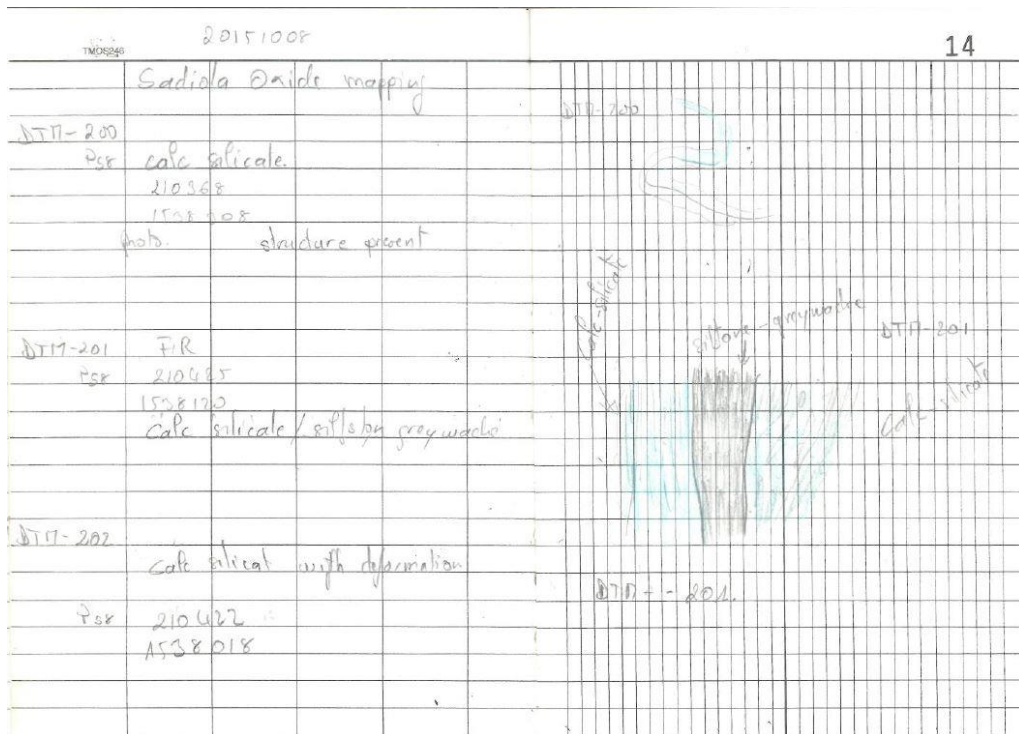 20151008
14
Sadiola Oxide mapping
DTM-200
calc silicate.
210368
photo. structure present
DTM-201 FR
210425
1538120
Calc silicate / siltston greywacke
DTM-202
Calc silicat with deformation
210422
1538018
DTM-200
Calc-silicate
siltone-greywacke
DTM-201
Calc silicate
DTM--201.